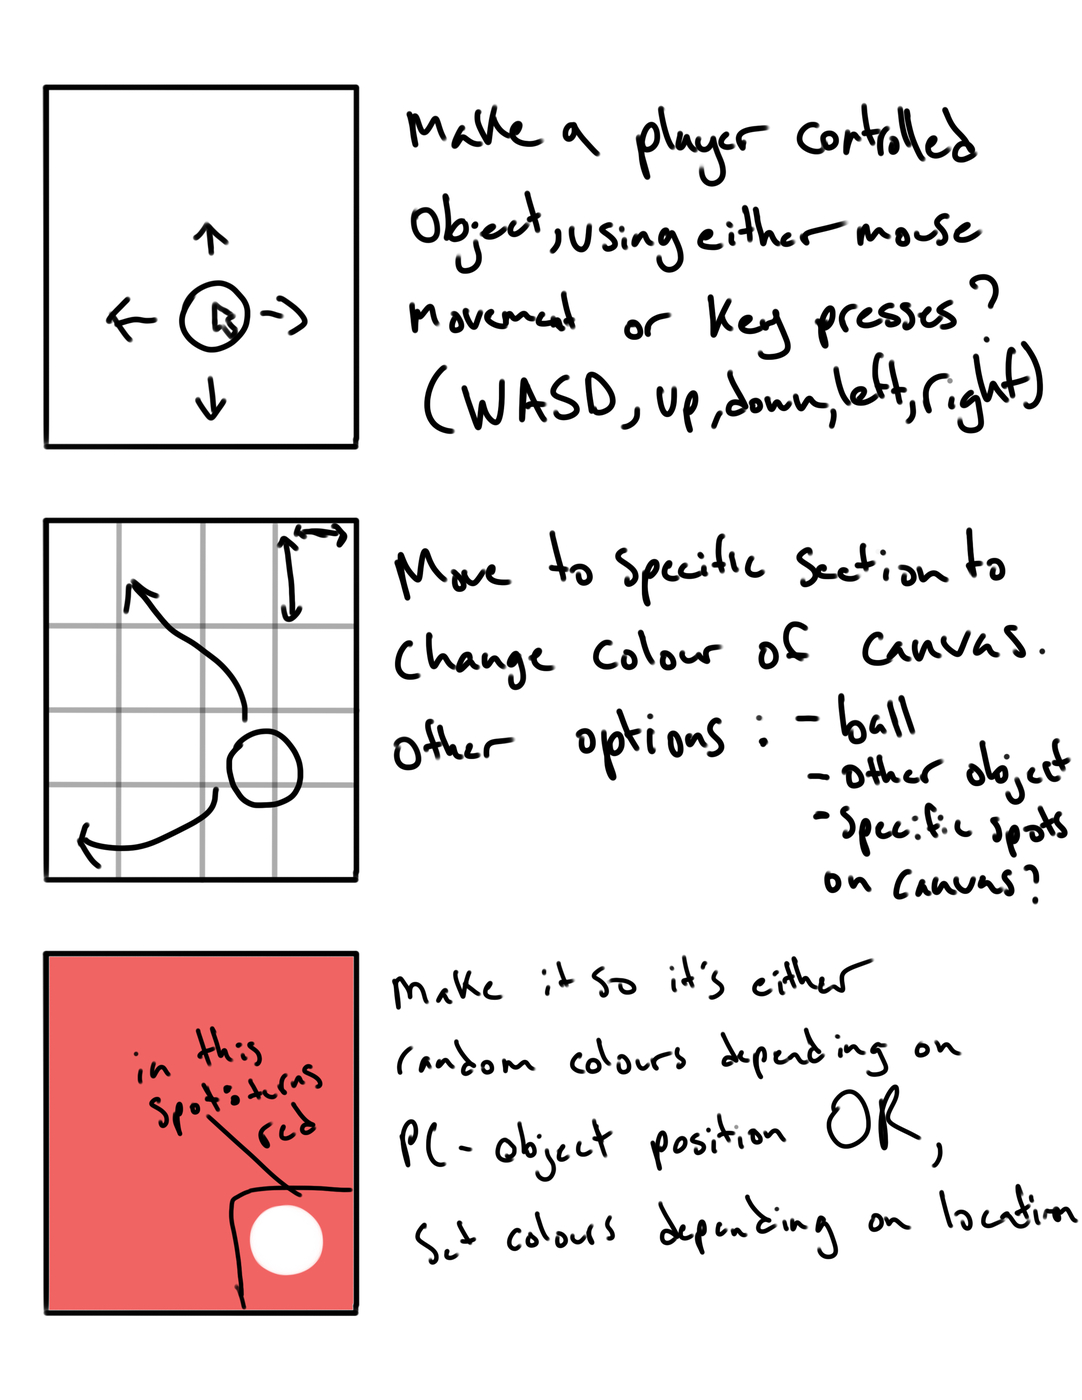 Make a player controlled
Object, using either mouse
movement or key presses?
(WASD, up, down, left, right)
Move to specific section to
change colour of canvas.
Other options: - ball
- other object
- specific spots
on canvas?
Make it so it's either
random colours depending on
PC-object position OR,
set colours depending on location
in this
spot: turns
red